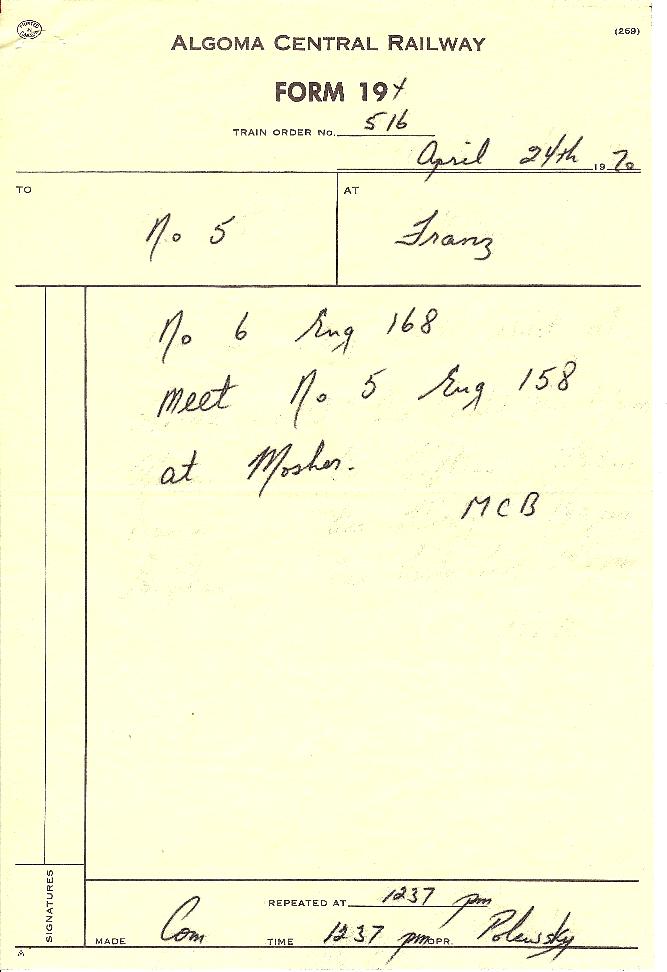 PRINTED IN CANADA
(269)
ALGOMA CENTRAL RAILWAY
FORM 19Y
TRAIN ORDER No. 516
April 24th 1970
TO
No 5
AT
Franz
No 6 Eng 168
meet No 5 Eng 158
at Mosher.
MCB
SIGNATURES
REPEATED AT 1237 pm
MADE Com TIME 1237 pm OPR. Polewsky